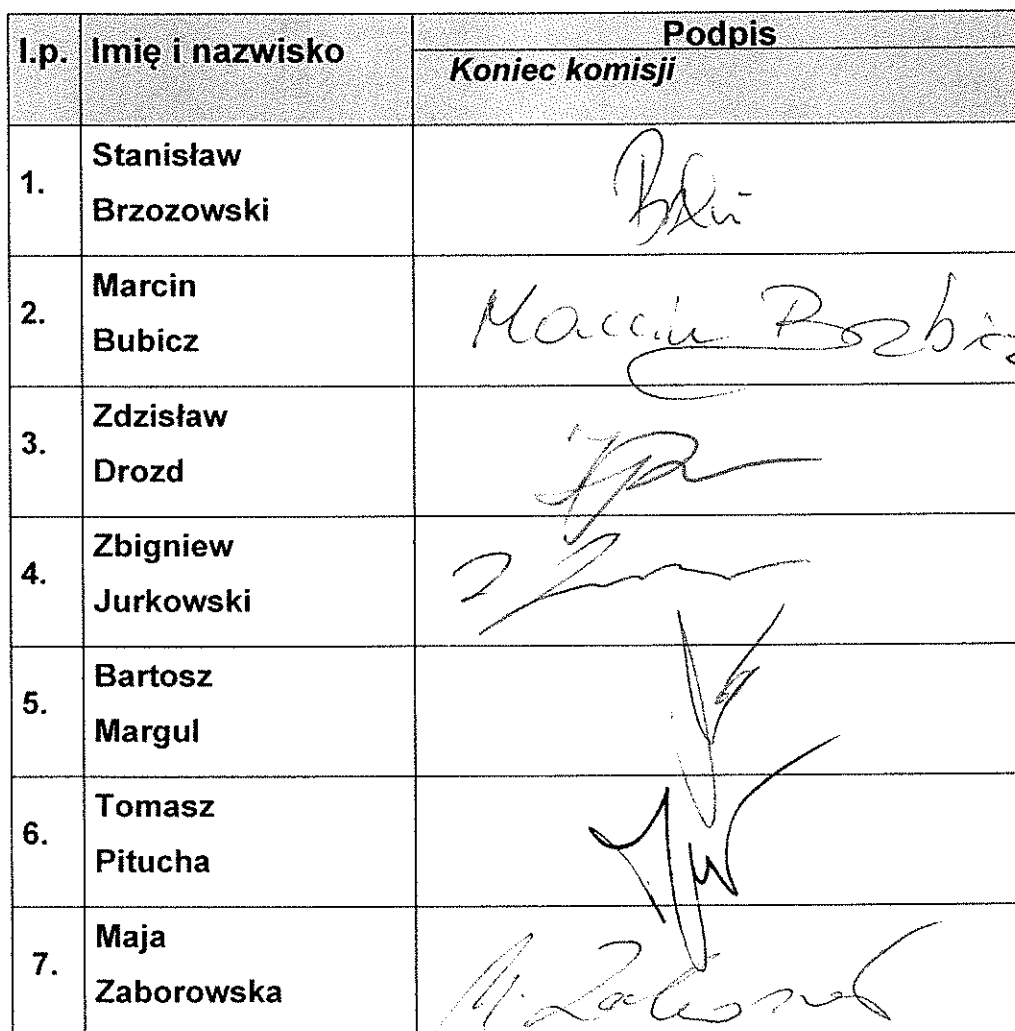 l.p. Imię i nazwisko Podpis
Koniec komisji
1. Stanisław
Brzozowski
2. Marcin
Bubicz
Marcin Bubicz
3. Zdzisław
Drozd
4. Zbigniew
Jurkowski
5. Bartosz
Margul
6. Tomasz
Pitucha
7. Maja
Zaborowska